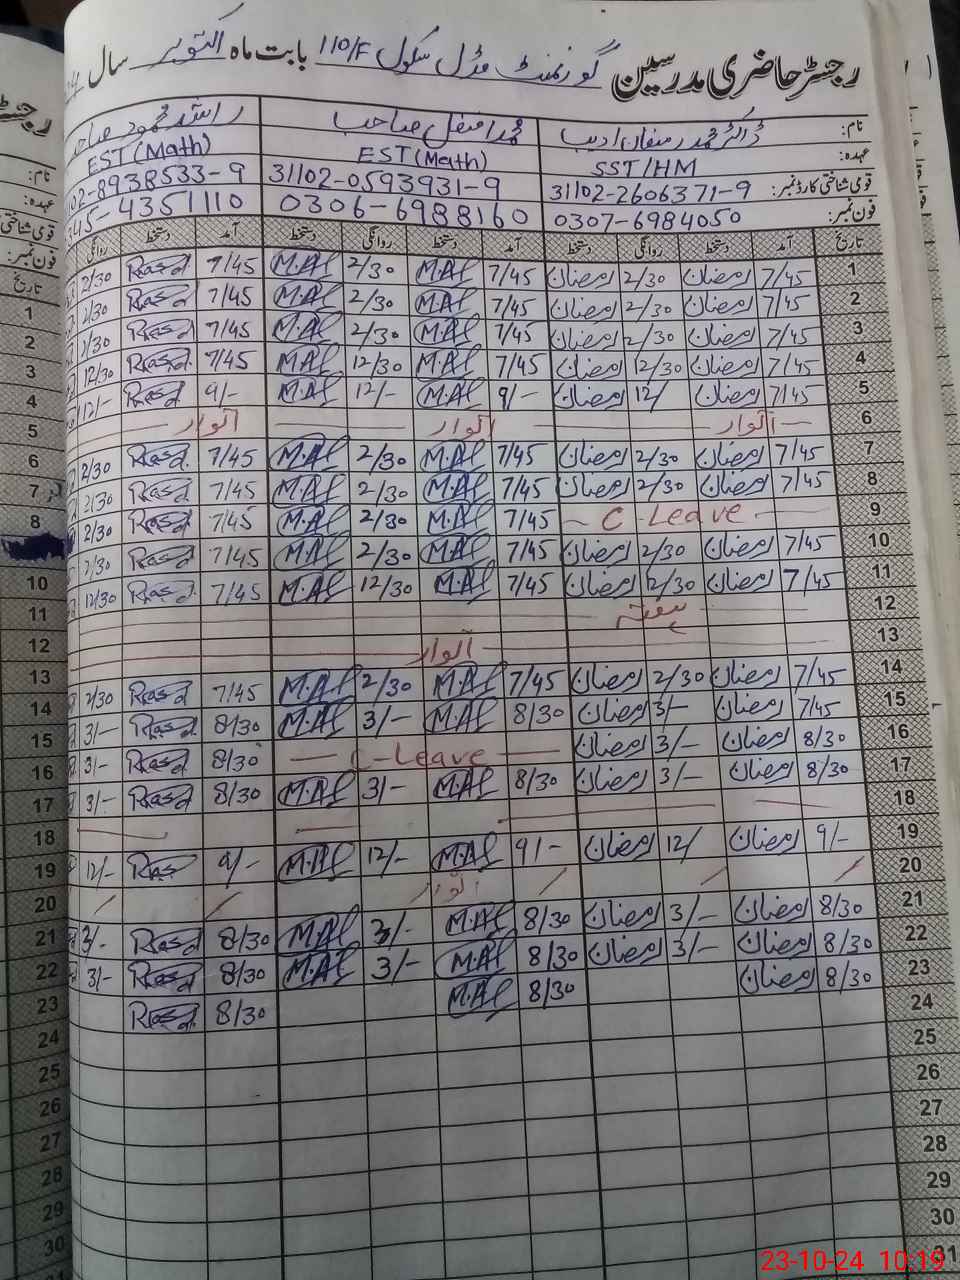 رجسٹر حاضری مدرسین گورنمنٹ مڈل سکول 110/F بابت ماہ اکتوبر سال
نام: ڈاکٹر محمد رمضان ادیب محمد افضل صاحب راشد محمود صاحب
عہدہ: SST/HM EST(Math) EST(Math)
قومی شناختی کارڈ نمبر: 31102-2606371-9 31102-0593931-9 102-8938533-9
فون نمبر: 0307-6984050 0306-6988160 345-4351110
تاریخ آمد دستخط روانگی دستخط آمد دستخط روانگی دستخط آمد دستخط روانگی
1 7/45 رمضان 2/30 رمضان 7/45 M.Af 2/30 M.Af 7/45 Rasd 2/30
2 7/45 رمضان 2/30 رمضان 7/45 M.Af 2/30 M.Af 7/45 Rasd 2/30
3 7/45 رمضان 2/30 رمضان 7/45 M.Af 2/30 M.Af 7/45 Rasd 2/30
4 7/45 رمضان 12/30 رمضان 7/45 M.Af 12/30 M.Af 7/45 Rasd 12/30
5 7/45 رمضان 12/ رمضان 9/- M.Af 12/- M.Af 9/- Rasd 12/-
6 اتوار اتوار اتوار
7 7/45 رمضان 2/30 رمضان 7/45 M.Af 2/30 M.Af 7/45 Rasd 2/30
8 7/45 رمضان 2/30 رمضان 7/45 M.Af 2/30 M.Af 7/45 Rasd 2/30
9 C-Leave 7/45 M.Af 2/30 M.Af 7/45 Rasd 2/30
10 7/45 رمضان 2/30 رمضان 7/45 M.Af 2/30 M.Af 7/45 Rasd 2/30
11 7/45 رمضان 12/30 رمضان 7/45 M.Af 12/30 M.Af 7/45 Rasd 12/30
12 ہفتہ
13 اتوار
14 7/45 رمضان 2/30 رمضان 7/45 M.Af 2/30 M.Af 7/45 Rasd 2/30
15 7/45 رمضان 3/- رمضان 8/30 M.Af 3/- M.Af 8/30 Rasd 3/-
16 8/30 رمضان 3/- رمضان C-Leave 8/30 Rasd 3/-
17 8/30 رمضان 3/- رمضان 8/30 M.Af 3/- M.Af 8/30 Rasd 3/-
18
19 9/- رمضان 12/ رمضان 9/- M.Af 12/- M.Af 9/- Rasd 12/-
20 اتوار
21 8/30 رمضان 3/- رمضان 8/30 M.Af 3/- M.Af 8/30 Rasd 3/-
22 8/30 رمضان 3/- رمضان 8/30 M.Af 3/- M.Af 8/30 Rasd 3/-
23 8/30 رمضان 8/30 M.Af 8/30 Rasd
24
25
26
27
28
29
30
31
نام:
عہدہ:
قومی شناختی
فون نمبر:
تاریخ
1
2
3
4
5
6
7
8
10
11
12
13
14
15
16
17
18
19
20
21
22
23
24
25
26
27
28
29
30
23-10-24 10:19